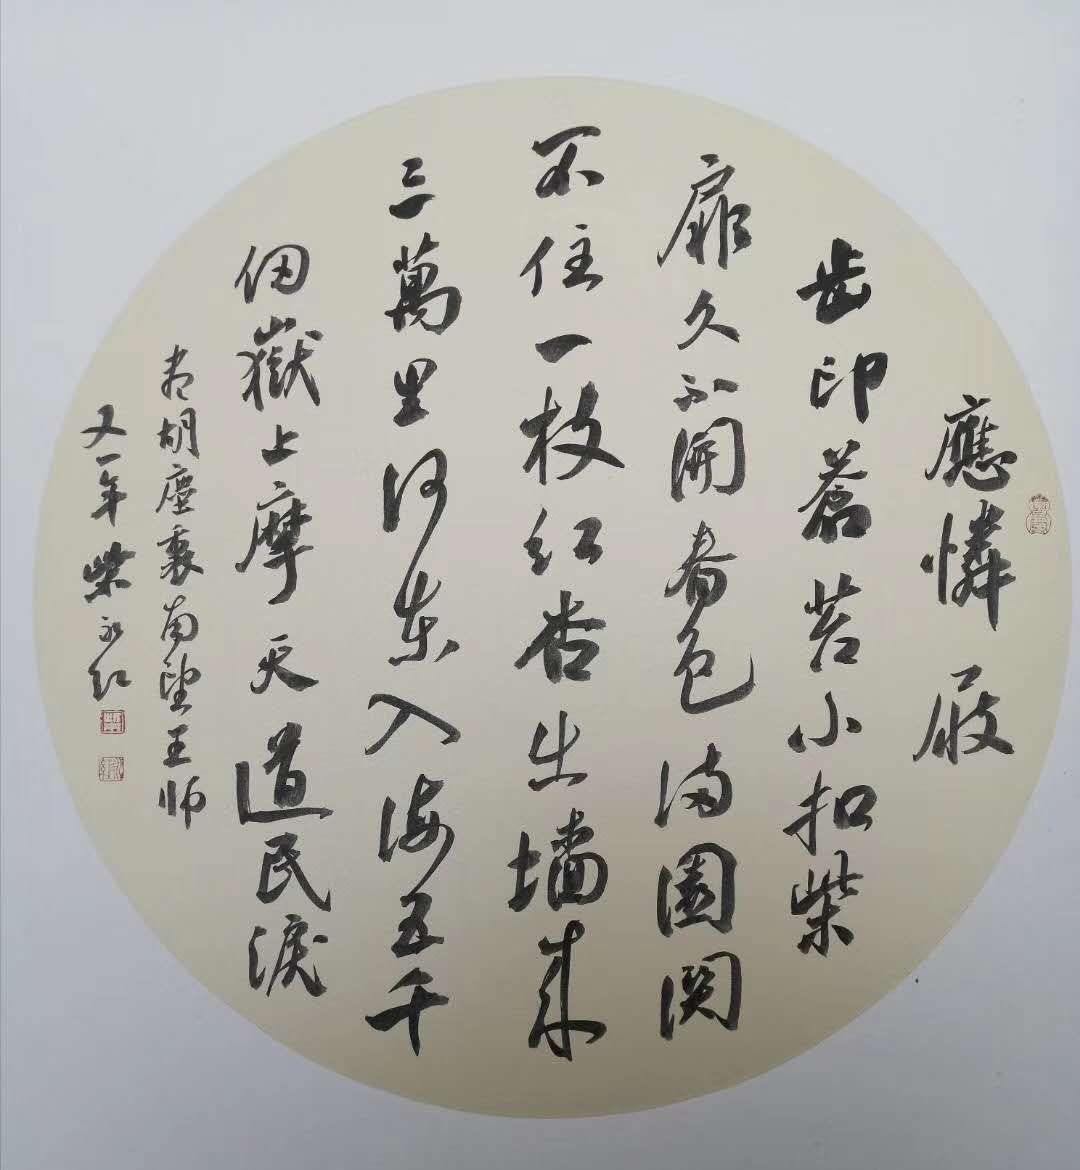 應憐屐
齒印蒼苔小扣柴
扉久不開春色滿園関
不住一枝紅杏出墻來
三萬里河東入海五千
仞嶽上摩天遺民淚
盡胡塵裏南望王師
又一年 柴永紅